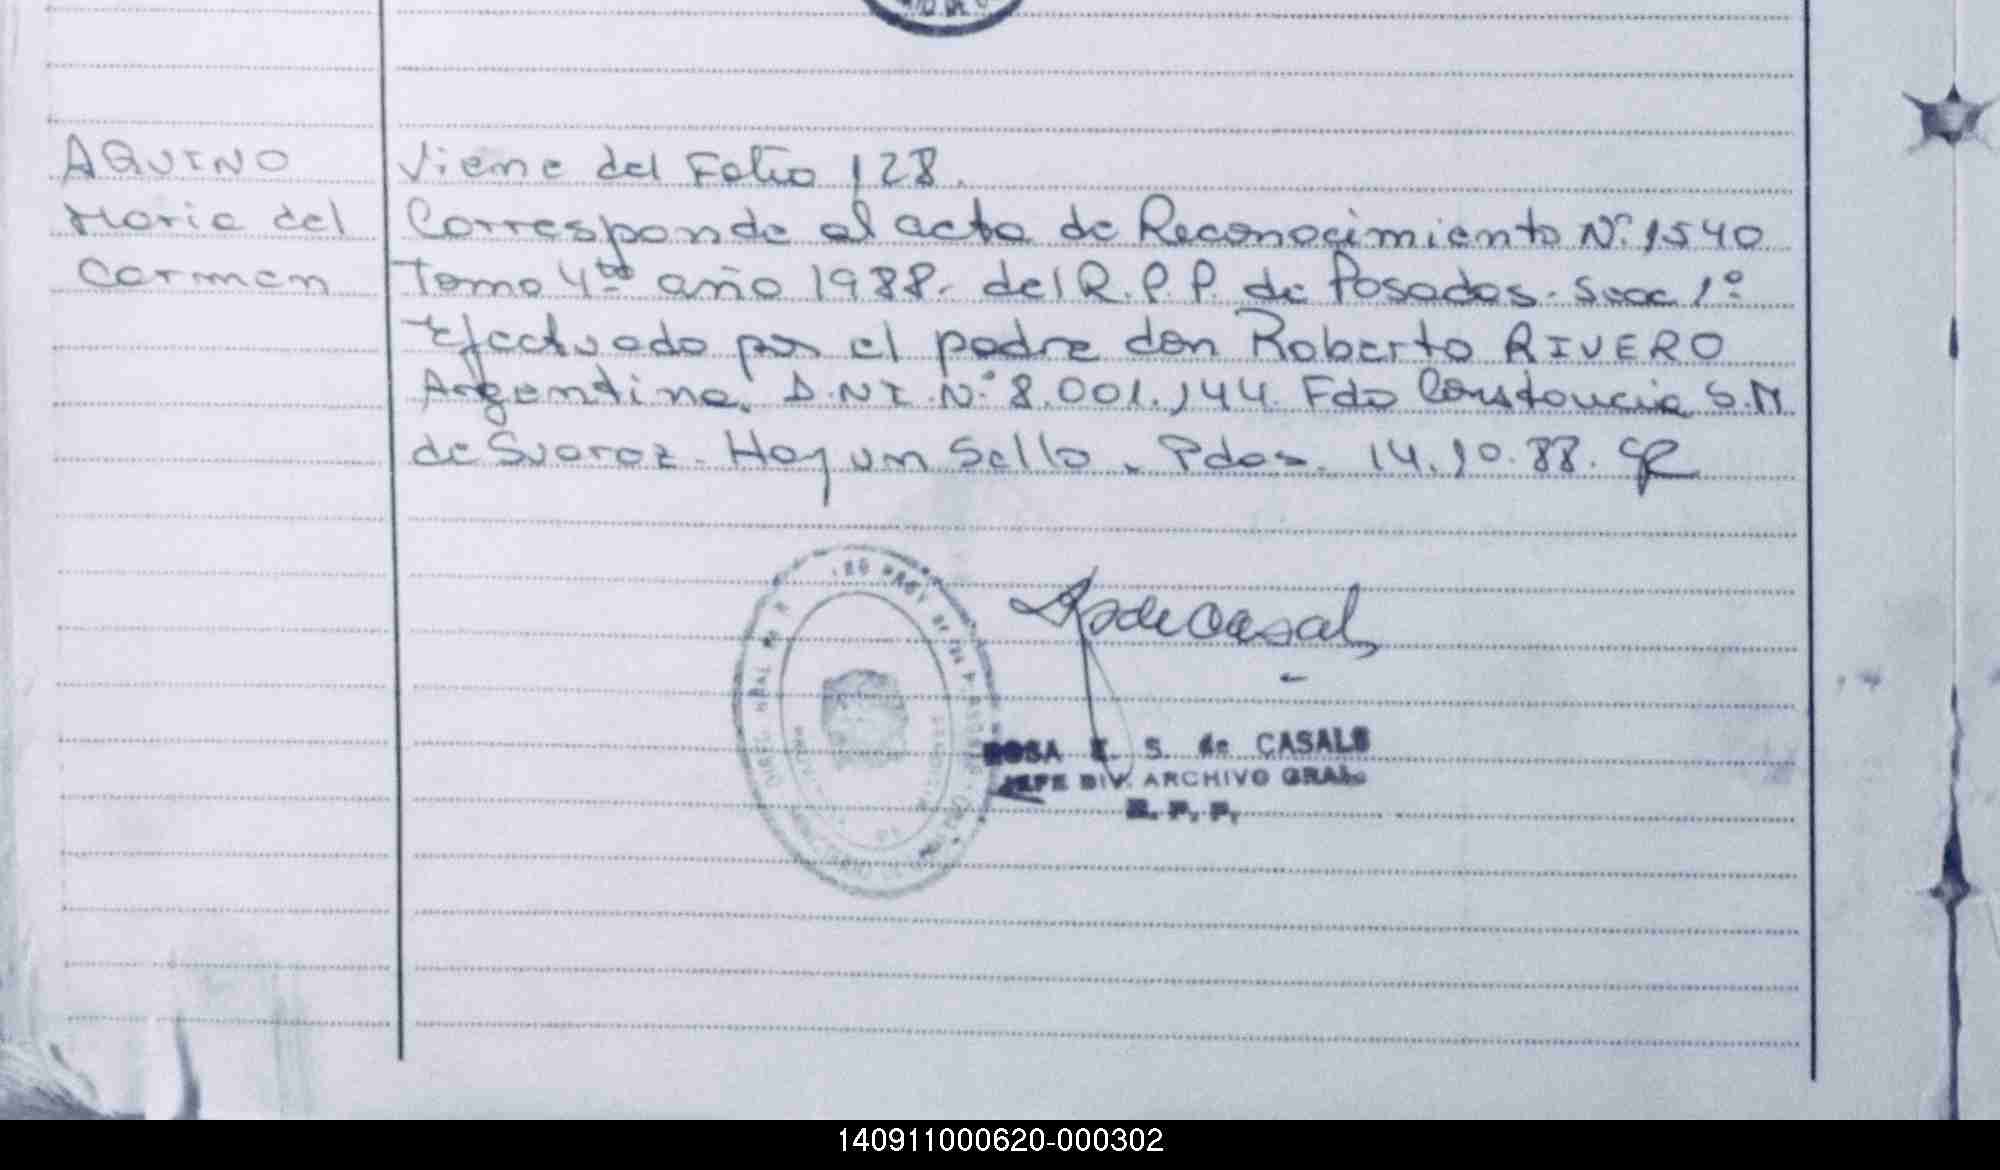 AQUINO
Maria del
Carmen
Viene del Folio 128.
Corresponde al acta de Reconocimiento N° 1540
Tomo 4to año 1988. del R.P.P. de Posadas. Secc 1°
Efectuado por el padre don Roberto RIVERO
Argentino. D.N.I. N° 8.001.144. Fdo Constancia S.M.
de Suarez. Hay un Sello. Pdas. 14.10.88.
ROSA E. S. de CASALS
JEFE DIV. ARCHIVO GRAL.
R. P. P.
140911000620-000302